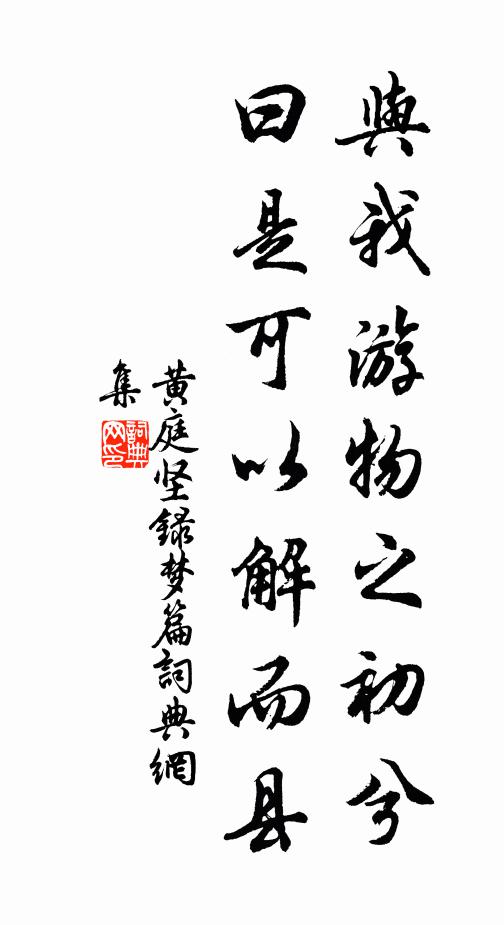 與我游物之初兮
曰是可以解而县
黄庭坚録梦篇詞典網
集
詞典
网印